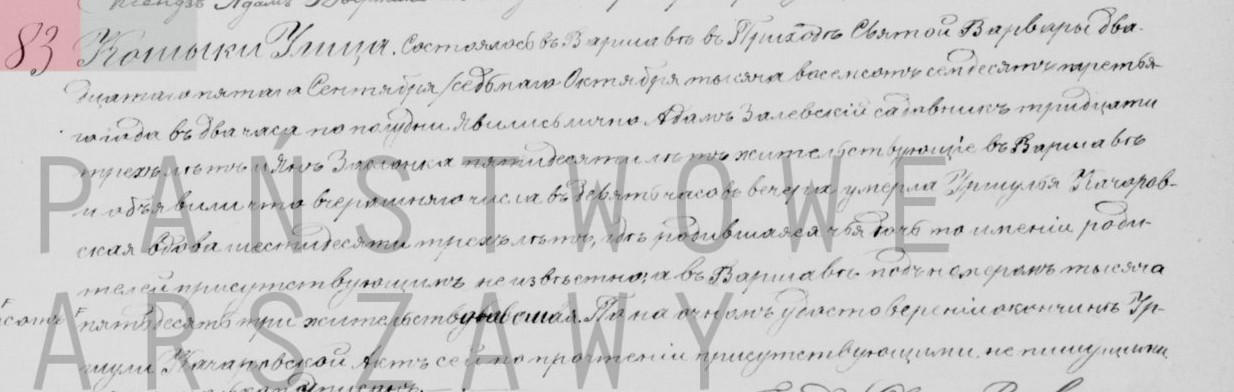 Ксендзъ Адамъ
83 Кошыки Улица. Состоялось въ Варшавѣ въ Приходѣ Святой Варвары два-
дцатаго пятаго Сентября /седьмаго Октября тысяча восемсотъ семдесятъ третья-
го года въ два часа по полудни. Явились лично Адамъ Залевскій садовникъ тридцати
трехъ лѣтъ и Янъ пятидесяти лѣтъ жительствующіе въ Варшавѣ
и объявили что вчерашняго числа въ девять часовъ вечера умерла Уршуля Качоров-
ская вдова шестидесяти трехъ лѣтъ, гдѣ родившаяся чья дочь то именіи роди-
телей присутствующимъ не извѣстно; а въ Варшавѣ подъ номеромъ тысяча
сотъ пятьдесятъ три жительствовавшая. По наочномъ удостовереніи о кончинѣ Ур-
шули Качаровской Актъ сей по прочтеніи присутствующимъ не пишущими
PAŃSTWOWE
ARSZAWY